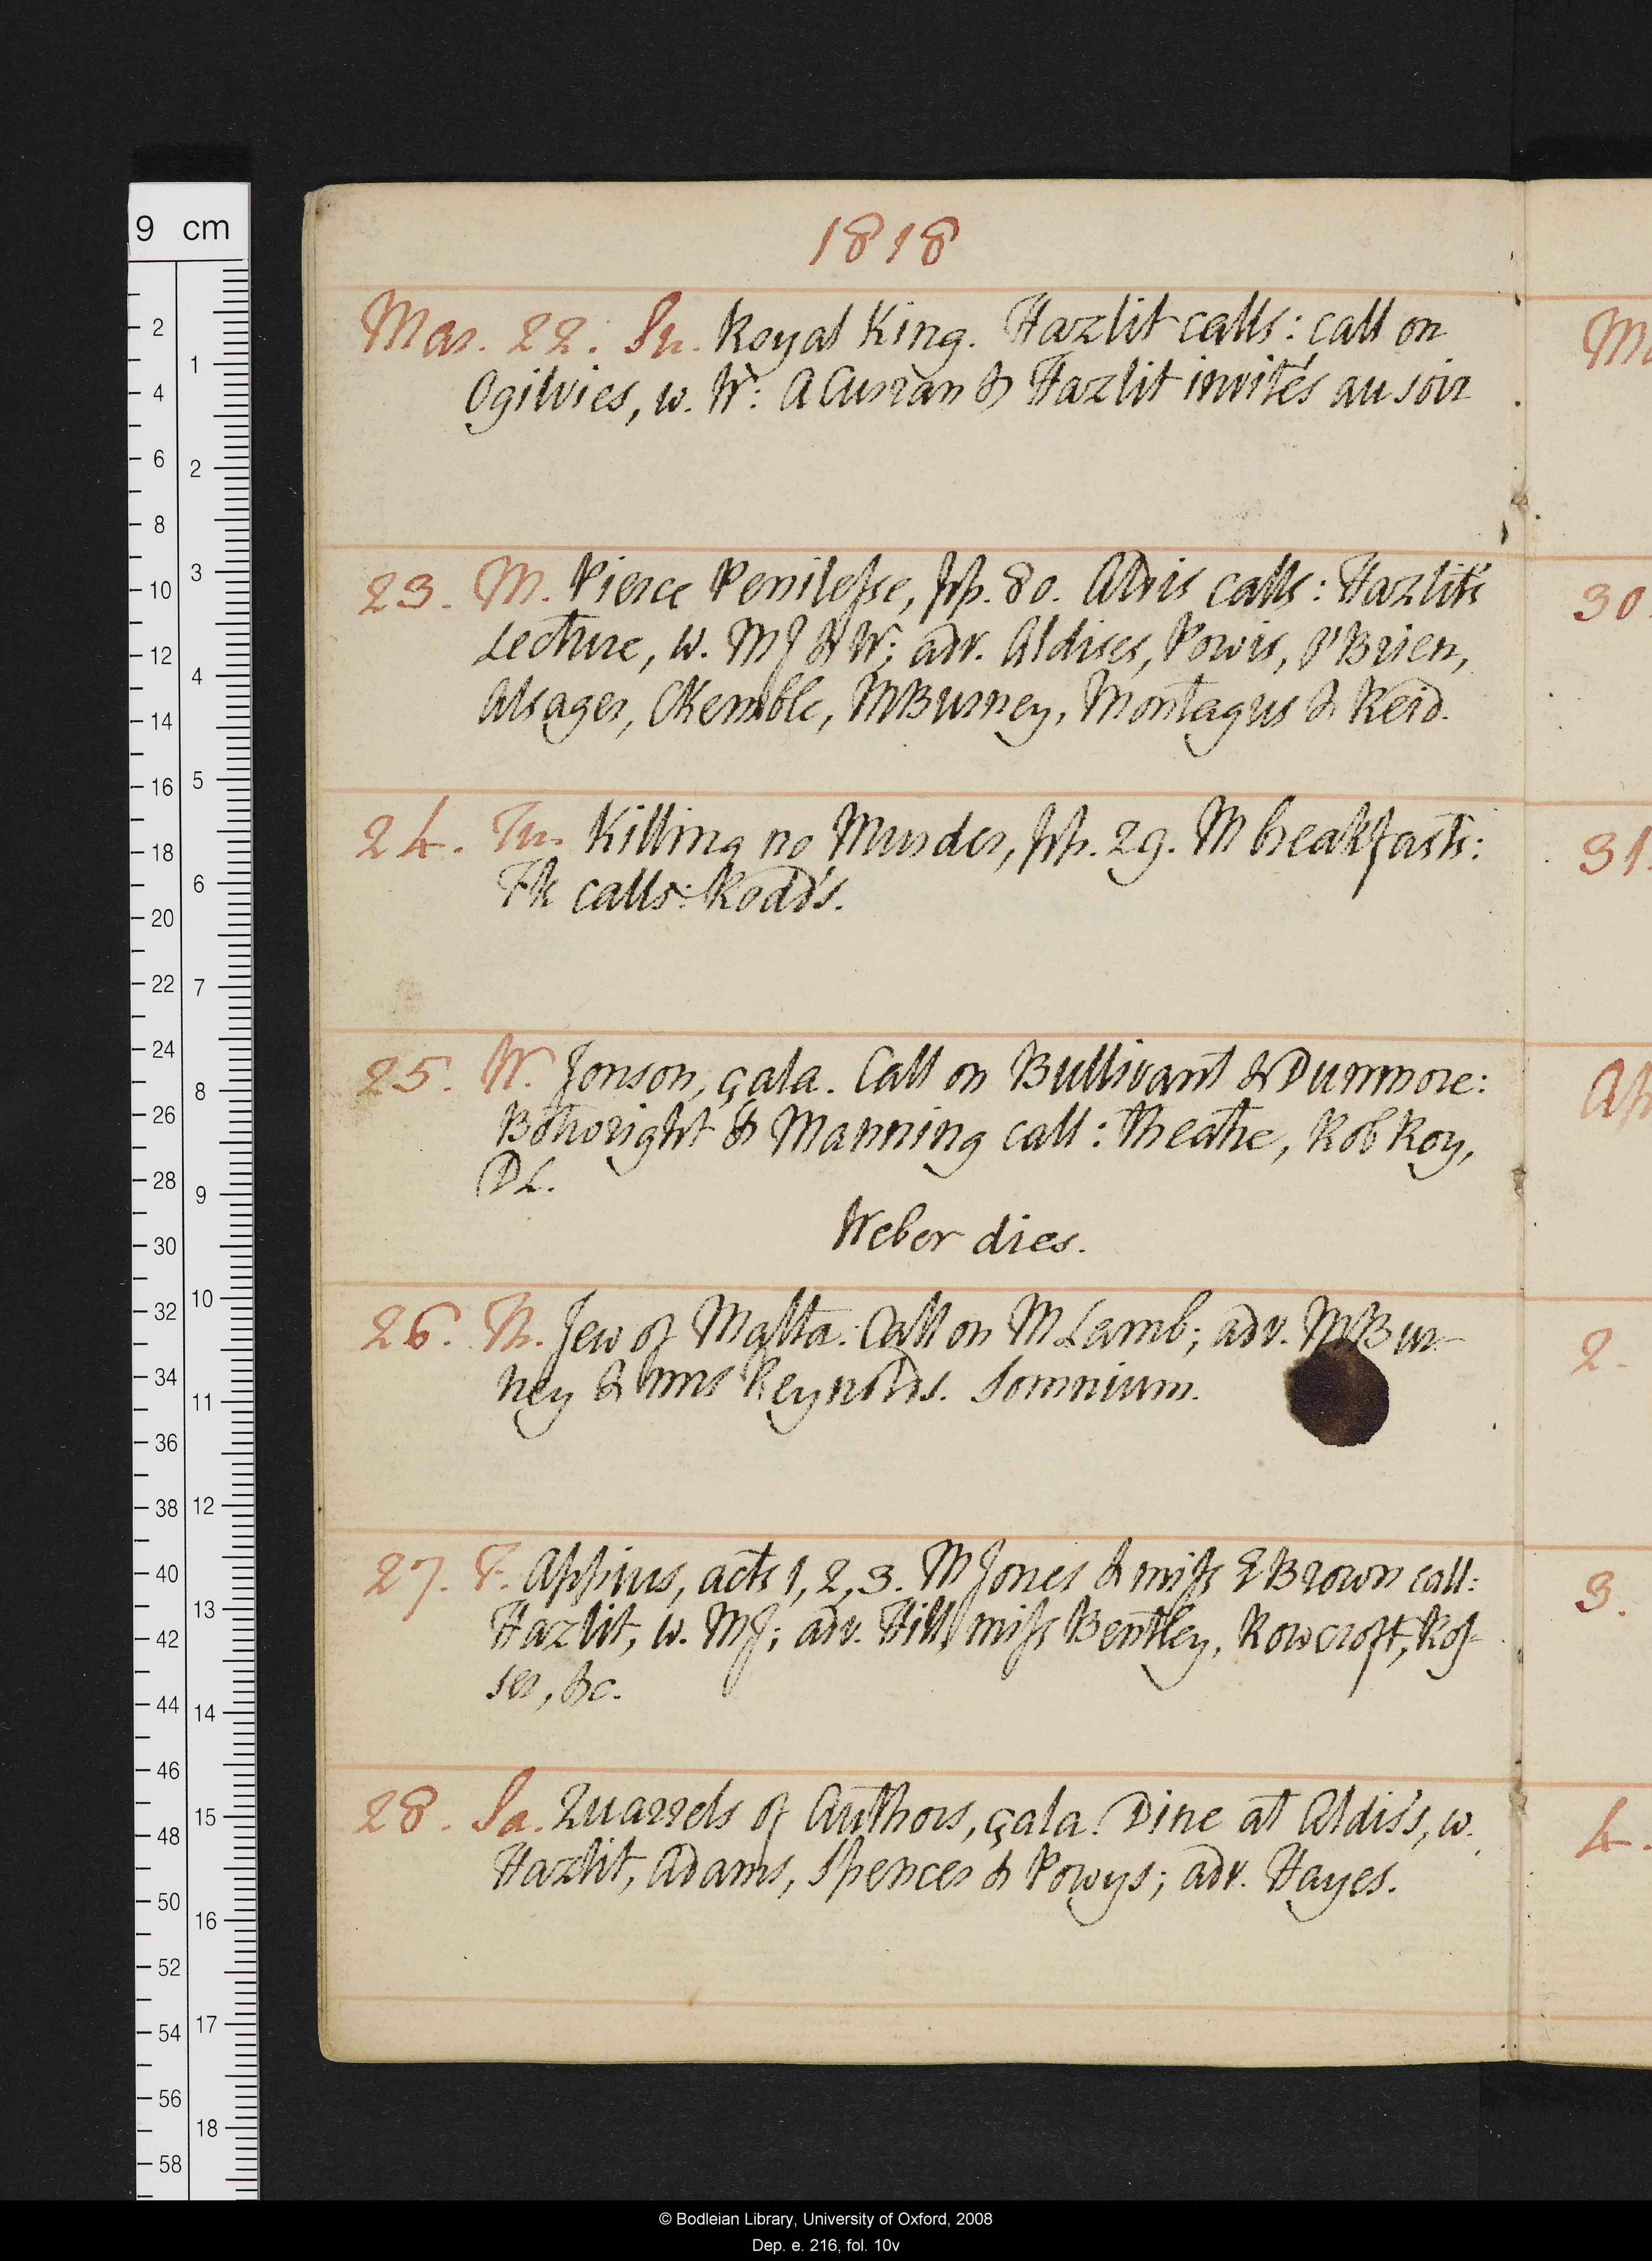 1818
Mar. 22. Su. Royal King. Hazlit calls: call on
Ogilvies, w. W: A Curran & Hazlit invités au soir
23. M. Pierce Penilesse, pp. 80. Aldis calls: Hazlit's
Lecture, w. MJ & W; adv. Aldises, Powis, O'Brien,
Alsager, CKemble, MBurney, Montagus & Reid.
24. Tu. Killing no Murder, pp. 29. M breakfasts:
calls: Rodd's.
25. W. Jonson, çala. Call on Bullivant & Dunmore:
Botwright & Manning call: theatre, Rob Roy,
DL.
Weber dies.
26. Th. Jew of Malta. Call on M Lamb; adv. MBur-
ney & mrs Reynolds. Somnium.
27. F. Appius, acts 1, 2, 3. M Jones & miss E Brown call:
Hazlit, w. MJ; adv. Hill, miss Bentley, Rowcroft, Ros-
ser, &c.
28. Sa. Quarrels of Authors, çala. Dine at Aldis's, w.
Hazlit, Adams, Spencer & Powys; adv. Hayes.
M
30.
31.
Ap
2.
3.
4.
9 cm
2
4
6
8
10
12
14
16
18
20
22
24
26
28
30
32
34
36
38
40
42
44
46
48
50
52
54
56
58
1
2
3
4
5
6
7
8
9
10
11
12
13
14
15
16
17
18
© Bodleian Library, University of Oxford, 2008
Dep. e. 216, fol. 10v